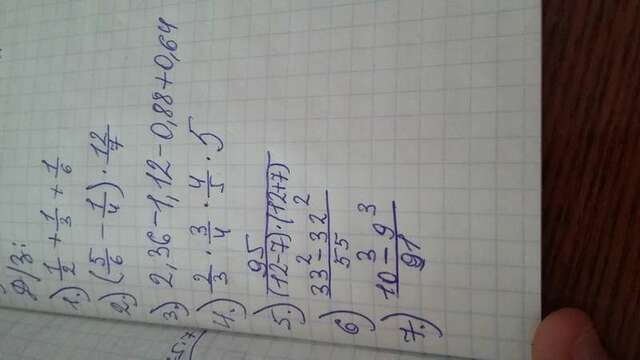 Д/З:
1.) 1/2 + 1/3 + 1/6
2.) (5/6 - 1/4) · 12/7
3.) 2,36 - 1,12 - 0,88 + 0,64
4.) 2/3 · 3/4 · 4/5 · 5
5.) 95/(12-7)·(12+7)
6) 33² - 32²/55
7.) 10³ - 9³/91